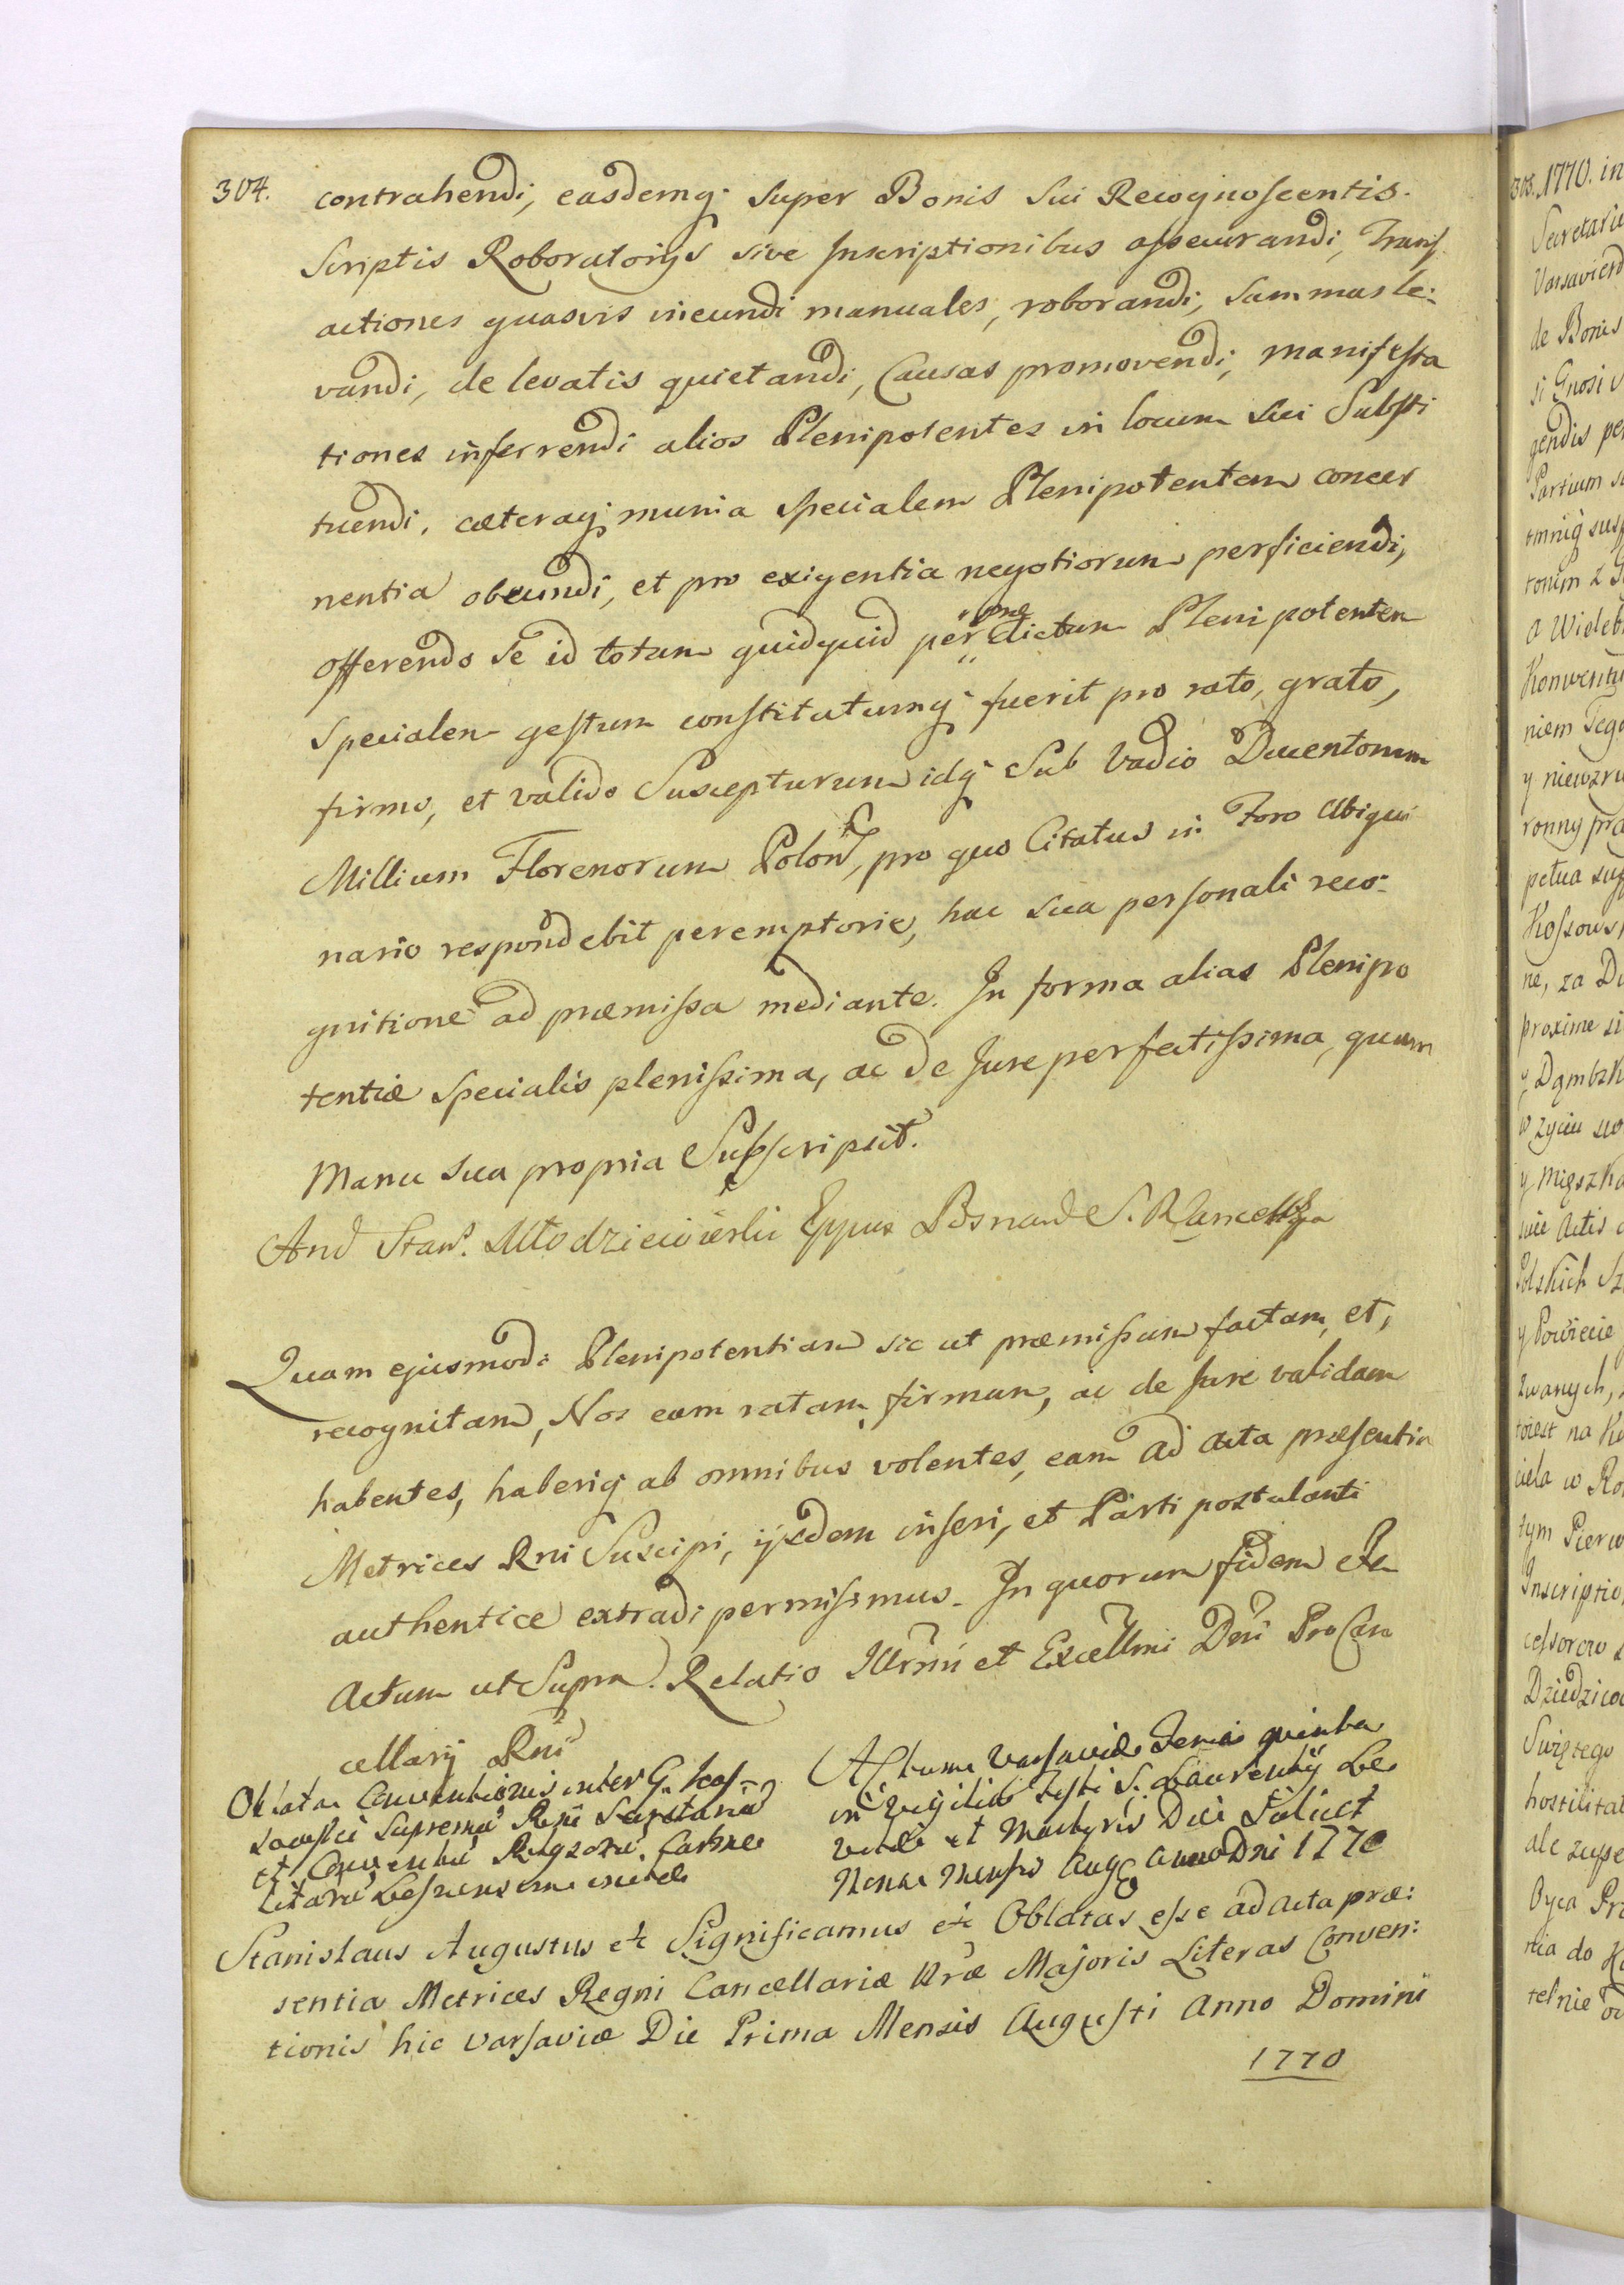 304.
contrahendi, easdemq; super Bonis sui Recognoscentis.
Scriptis Roboratorijs sive Inscriptionibus assecurandi, Trans
actiones quasvis ineundi manuales, roborandi, summas le:
vandi, de levatis quietandi, Causas promovendi, manifesta
tiones inferrendi alios Plenipotentes in locum sui Substi
tuendi, cæteraq; munia specialem Plenipotentem concer
nentia obeundi, et pro exigentia negotiorum perficiendi,
offerendo se id totum quidquid per præ dictum Plenipotentem
specialem gestum constitutumq; fuerit pro rato, grato,
firmo, et valido Suscepturum idq; Sub Vadio Ducentorum
Millium Florenorum Polon, pro quo Citatus in Foro Ubiqui
nario respondebit peremptorie, hac sua personali reco:
gnitione ad præmissa mediante. In forma alias Plenipo
tentiæ specialis plenissima, ac de Jure perfectissima, quam
Manu sua propria Subscripsit.
And Stan. Młodzieiowski Eppus Posnan S. R.
Quam ejusmodi Plenipotentiam sic ut præmissum factam, et,
recognitam, Nos eam ratam, firmam, ac de Jure validam
habentes, haberiq; ab omnibus volentes, eam ad acta præsentia
Metrices Rni Suscipi, ijsdem inseri, et Parti postulanti
authentice extradi permisimus. In quorum fidem etc
Actum ut Supra. Relatio Illrmi et Excellmi Dni Pro Can
cellarij Rni
Oblata Conventionis inter G. Kos=
sowski Supremu Rgni Secretariu
et Conventu Carme
litaru
Actum Varsaviæ Feria quinta
in Vigilia Festi S. Laurentij Le
vitæ et Martyris Die Scilicet
Nona Mensis Aug Anno Dni 1770
Stanislaus Augustus etc Significamus etc Oblatas esse ad acta præ:
sentia Metrices Regni Cancellariæ Nræ Majoris Literas Conven:
tionis hic Varsaviæ Die Prima Mensis Augusti Anno Domini
1770
305. 1770. in
de Bonis
a
y
ne, za
proxime
y Powiecie
zwanych,
toiest na
w
tym
Swiętego